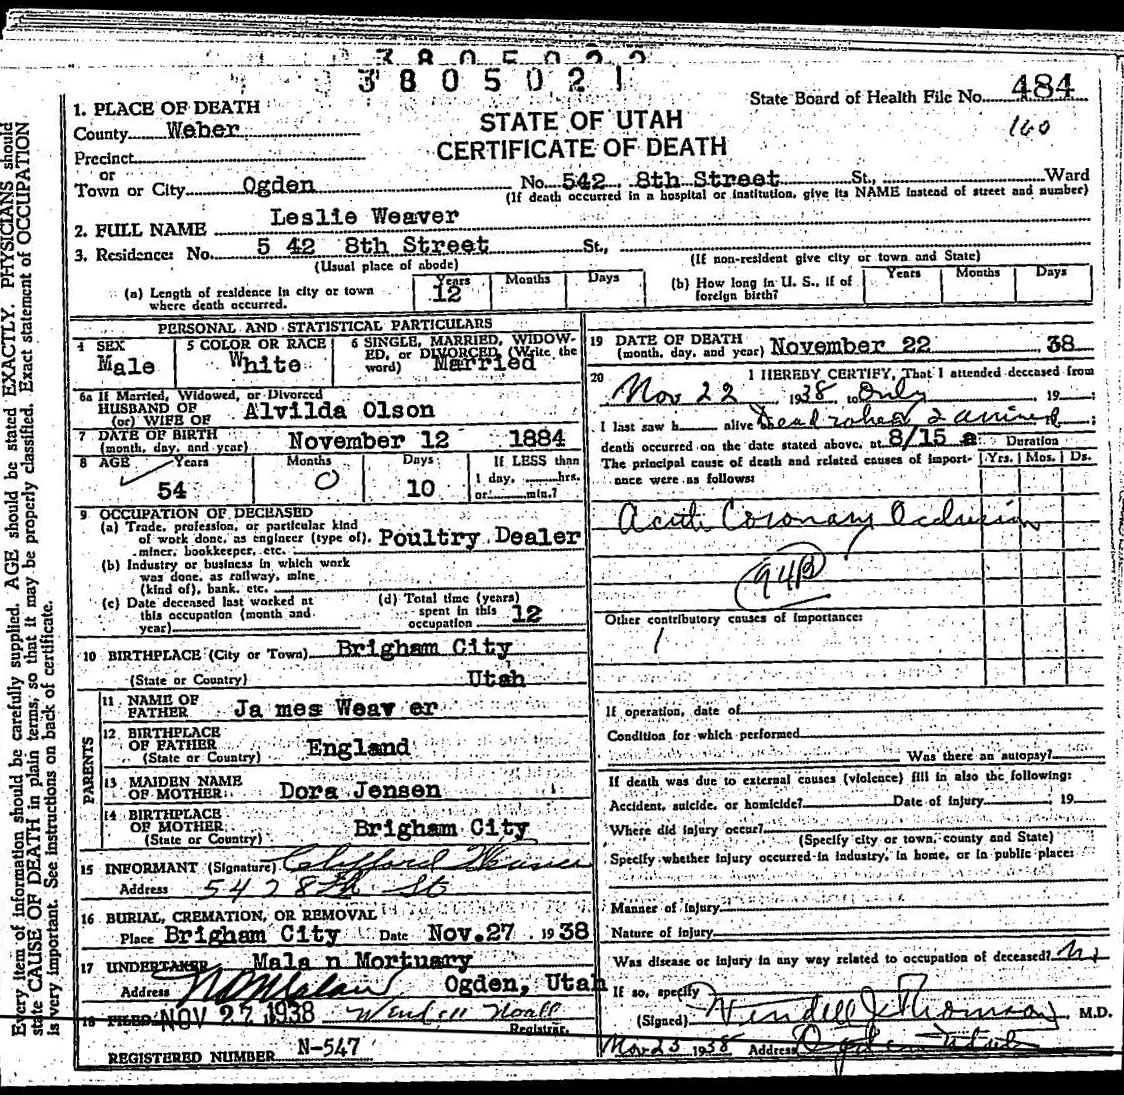 3805022
3805021
State Board of Health File No. 484
160
1. PLACE OF DEATH
County Weber
STATE OF UTAH
CERTIFICATE OF DEATH
Precinct
or
Town or City Ogden No. 542 8th Street St., Ward
(If death occurred in a hospital or institution, give its NAME instead of street and number)
2. FULL NAME Leslie Weaver
3. Residence: No. 5 42 8th Street St.,
(Usual place of abode) (If non-resident give city or town and State)
(a) Length of residence in city or town where death occurred. Years 12 Months Days
(b) How long in U. S., if of foreign birth? Years Months Days
PERSONAL AND STATISTICAL PARTICULARS
4 SEX Male
5 COLOR OR RACE White
6 SINGLE, MARRIED, WIDOW-
ED, or DIVORCED (Write the
word) Married
6a If Married, Widowed, or Divorced
HUSBAND OF
(or) WIFE OF Alvilda Olson
7 DATE OF BIRTH
(month, day, and year) November 12 1884
8 AGE Years Months Days If LESS than
1 day, hrs.
54 0 10 or min.?
9 OCCUPATION OF DECEASED
(a) Trade, profession, or particular kind
of work done, as engineer (type of), Poultry Dealer
miner, bookkeeper, etc.
(b) Industry or business in which work
was done, as railway, mine
(kind of), bank, etc.
(c) Date deceased last worked at
this occupation (month and
year)
(d) Total time (years)
spent in this
occupation 12
10 BIRTHPLACE (City or Town) Brigham City
(State or Country) Utah
PARENTS
11 NAME OF
FATHER Ja mes Weav er
12 BIRTHPLACE
OF FATHER England
(State or Country)
13 MAIDEN NAME
OF MOTHER Dora Jensen
14 BIRTHPLACE
OF MOTHER Brigham City
(State or Country)
15 INFORMANT (Signature) Clifford
Address 542 8th St
16 BURIAL, CREMATION, OR REMOVAL
Place Brigham City Date Nov.27 1938
17 UNDERTAKER Mala n Mortuary
Address Ogden, Utah
18 FILED NOV 27 1938 Wendell Noall
Registrar.
REGISTERED NUMBER N-547
19 DATE OF DEATH
(month, day, and year) November 22 38
20 I HEREBY CERTIFY, That I attended deceased from
Nov 22 1938 to Only 19
I last saw h alive Dead when I arrived
death occurred on the date stated above, at 8/15 a Duration
The principal cause of death and related causes of import-
ance were as follows: Yrs. Mos. Ds.
Acute Coronary Occlusion
94B
Other contributory causes of importance:
If operation, date of
Condition for which performed
Was there an autopsy?
If death was due to external causes (violence) fill in also the following:
Accident, suicide, or homicide? Date of injury 19
Where did injury occur?
(Specify city or town, county and State)
Specify whether injury occurred in industry, in home, or in public place:
Manner of injury
Nature of injury
Was disease or injury in any way related to occupation of deceased? No
If so, specify
(Signed) Wendell J Thomson M.D.
Nov 25 1938 Address Ogden Utah
Every item of information should be carefully supplied. AGE should be stated EXACTLY. PHYSICIANS should
state CAUSE OF DEATH in plain terms, so that it may be properly classified. Exact statement of OCCUPATION
is very important. See instructions on back of certificate.